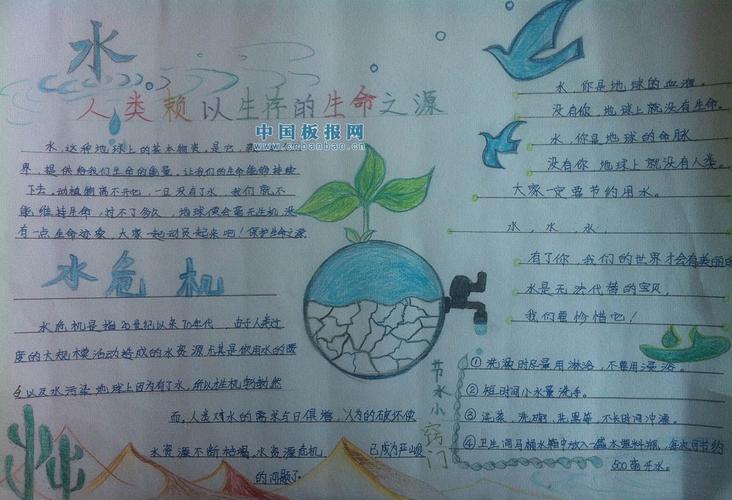 水
人类赖以生存的生命之源
中国板报网
www.cmbanbao.cn
水,这种地球上的基本物资,是它,
界,提供给我们生命的能量,让我们的生命能够持续
下去。动植物离不开它,一旦没有了水,我们就不
能维持生命,过不了多久,地球便会毫无生机,没
有一点生命迹象,大家一起动员起来吧!保护生命之源
水危机
水危机是指20世纪以来70年代,由于人类过
度的大规模活动造成的水资源尤其是饮用水的匮
乏以及水污染,地球上因为有了水,所以生机勃勃然
而,人类对水的需求与日俱增,人为的破坏使
水资源不断枯竭,水资源危机已成为严峻
的问题了。
水,你是地球的血液。
没有你,地球上就没有生命。
水,你是地球的命脉
没有你,地球上就没有人类。
大家一定要节约用水。
水,水,水,
有了你,我们的世界才会有美丽
水是无法代替的宝贝,
我们要珍惜它!
节水小窍门
①洗澡时尽量用淋浴,不要用漫浴。
②短时间小水量洗手。
③洗菜、洗碗、洗果等,不长时间冲淋。
④卫生间马桶水箱中放入一盛水塑料瓶,每次可节约
500毫升水。